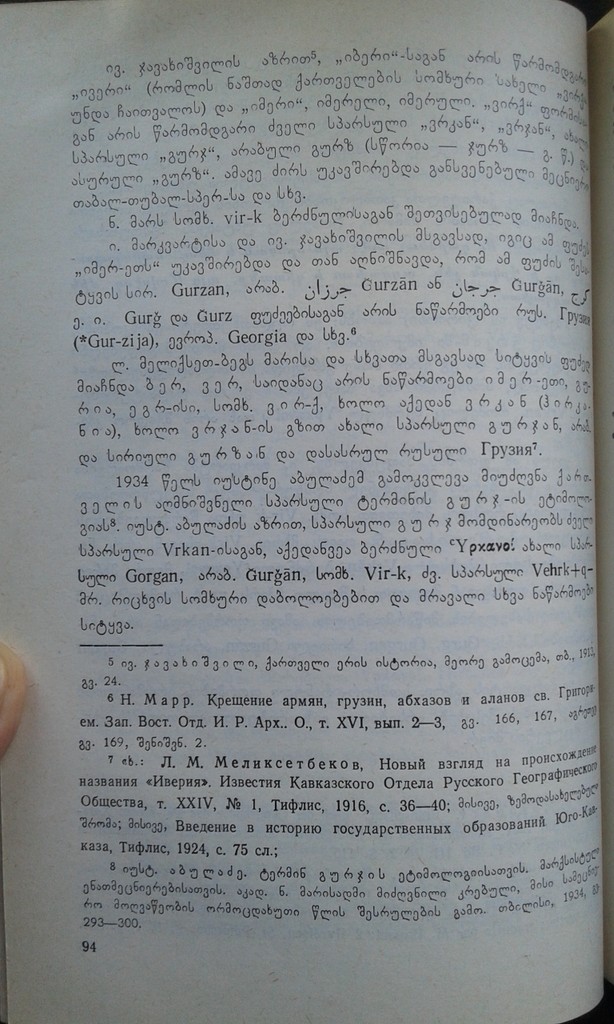 ივ. ჯავახიშვილის აზრით⁵, „იბერი“-საგან არის წარმომდგარი
„ივერი“ (რომლის ნაშთად ქართველების სომხური სახელი „ვირქ“
უნდა ჩაითვალოს) და „იმერი“, იმერელი, იმერული. „ვირქ“ ფორმისა-
გან არის წარმომდგარი ძველი სპარსული „ვრკან“, „ვრჯან“, ახალი
სპარსული „გურჯ“, არაბული გურზ (სწორია — ჯურზ — გ. წ.) და
ასურული „გურზ“. ამავე ძირს უკავშირებდა განსვენებული მეცნიერი
თაბალ-თუბალ-სპერ-სა და სხვ.
ნ. მარს სომხ. vir-k ბერძნულისაგან შეთვისებულად მიაჩნდა.
ი. მარკვარტისა და ივ. ჯავახიშვილის მსგავსად, იგიც ამ ფუძეს
„იმერ-ეთს“ უკავშირებდა და თან აღნიშნავდა, რომ ამ ფუძის შესა-
ტყვის სირ. Gurzan, არაბ. جرزان Gurzān ან جرجان Gurğān, كرج
ე. ი. Gurğ და Gurz ფუძეებისაგან არის ნაწარმოები რუს. Грузия
(*Gur-zija), ევროპ. Georgia და სხვ.⁶
ლ. მელიქსეთ-ბეგს მარისა და სხვათა მსგავსად სიტყვის ფუძედ
მიაჩნდა ბერ, ვერ, საიდანაც არის ნაწარმოები იმერ-ეთი, გუ-
რია, ეგრ-ისი, სომხ. ვირ-ქ, ხოლო აქედან ვრკან (ჰირკა-
ნია), ხოლო ვრჯან-ის გზით ახალი სპარსული გურჯან, არაბ.
და სირიული გურზან და დასასრულ რუსული Грузия⁷.
1934 წელს იუსტინე აბულაძემ გამოკვლევა მიუძღვნა ქართ-
ველის აღმნიშვნელი სპარსული ტერმინის გურჯ-ის ეტიმოლო-
გიას⁸. იუსტ. აბულაძის აზრით, სპარსული გურჯ მომდინარეობს ძველი
სპარსული Vrkan-ისაგან, აქედანვეა ბერძნული ʽΥρκανοί ახალი სპარ-
სული Gorgan, არაბ. Gurğān, სომხ. Vir-k, ძვ. სპარსული Vehrk+q—
მრ. რიცხვის სომხური დაბოლოებებით და მრავალი სხვა ნაწარმოები
სიტყვა.
⁵ ივ. ჯავახიშვილი, ქართველი ერის ისტორია, მეორე გამოცემა, თბ., 1913,
გვ. 24.
⁶ Н. Марр. Крещение армян, грузин, абхазов и аланов св. Григори-
ем. Зап. Вост. Отд. И. Р. Арх.. О., т. XVI, вып. 2—3, გვ. 166, 167, აგრეთვე
გვ. 169, შენიშვნ. 2.
⁷ იხ.: Л. М. Меликсетбеков, Новый взгляд на происхождение
названия «Иверия». Известия Кавказского Отдела Русского Географического
Общества, т. XXIV, № 1, Тифлис, 1916, с. 36—40; მისივე, ზემოდასახელებული
შრომა; მისივე, Введение в историю государственных образований Юго-Кав-
каза, Тифлис, 1924, с. 75 სლ.;
⁸ იუსტ. აბულაძე. ტერმინ გურჯის ეტიმოლოგიისათვის. მარქსისტული
ენათმეცნიერებისათვის. აკად. ნ. მარისადმი მიძღვნილი კრებული, მისი სამეცნიე-
რო მოღვაწეობის ორმოცდახუთი წლის შესრულების გამო. თბილისი, 1934, გვ.
293—300.
94